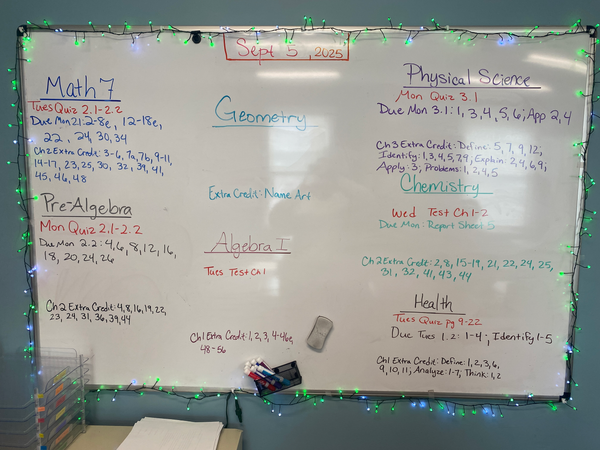 Sept 5, 2025
Math 7
Tues Quiz 2.1-2.2
Due Mon 2.1: 2-8e, 12-18e,
22, 24, 30, 34
Ch2 Extra Credit: 3-6, 7a, 7b, 9-11,
14-17, 23, 25, 30, 32, 39, 41,
45, 46, 48
Pre-Algebra
Mon Quiz 2.1-2.2
Due Mon 2.2: 4, 6, 8, 12, 16,
18, 20, 24, 26
Ch 2 Extra Credit: 4, 8, 16, 19, 22,
23, 29, 31, 36, 39, 44
Geometry
Extra Credit: Name Art
Algebra I
Tues Test Ch 1
Ch1 Extra Credit: 1, 2, 3, 4-46e,
48-56
Physical Science
Mon Quiz 3.1
Due Mon 3.1: 1, 3, 4, 5, 6; App 2, 4
Ch 3 Extra Credit: Define: 5, 7, 9, 12,
Identify: 1, 3, 4, 5, 7, 9, Explain: 2, 4, 6, 9,
Apply: 3, Problems: 1, 2, 4, 5
Chemistry
Wed Test Ch 1-2
Due Mon: Report Sheet 5
Ch 2 Extra Credit: 2, 8, 15-19, 21, 22, 24, 25,
31, 32, 41, 43, 44
Health
Tues Quiz pg 9-22
Due Tues 1.2: 1-4; Identify 1-5
Ch1 Extra Credit: Define: 1, 2, 3, 6,
9, 10, 11; Analyze: 1-7; Think: 1, 2